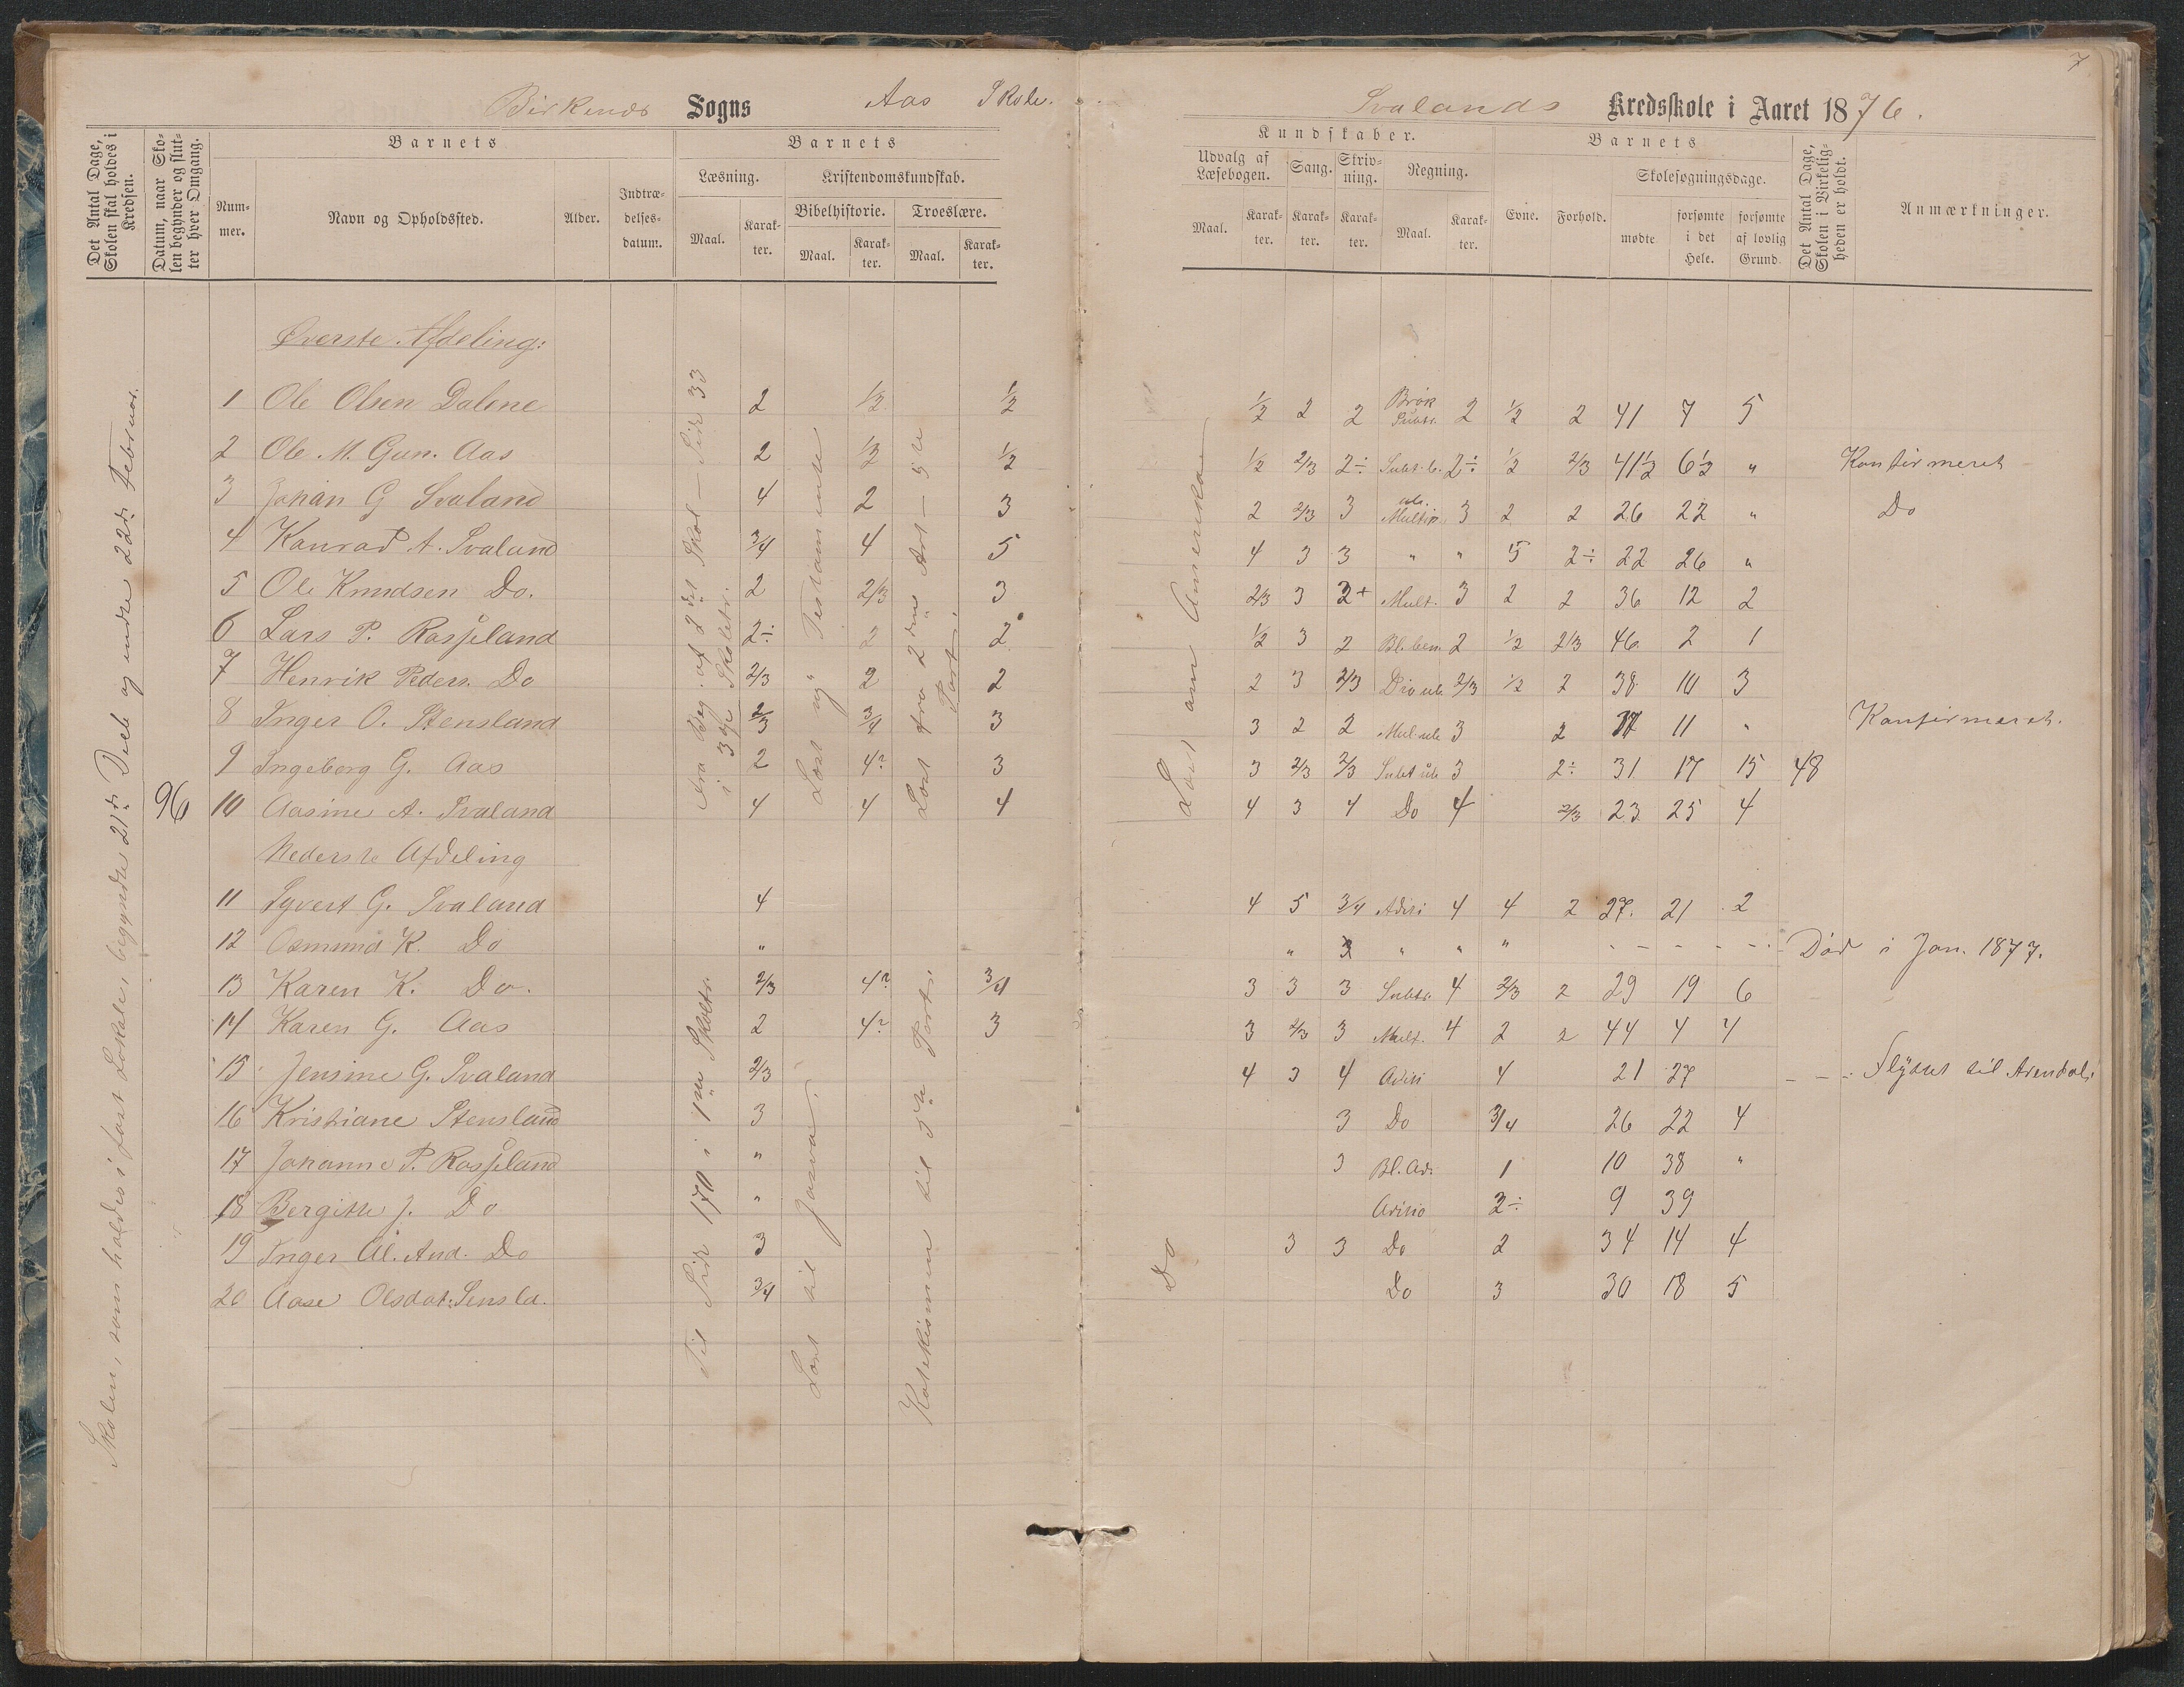 Birkenes Sogns Aas Skole.
Svalands Kredsskole i Aaret 1876.
7
Det Antal Dage, Skolen skal holdes i Kredsen.
Datum, naar Skolen begynder og slutter hver Omgang.
Barnets
Nummer.
Navn og Opholdssted.
Alder.
Indtrædelsesdatum.
Barnets
Læsning.
Maal.
Karakter.
Kristendomskundskab.
Bibelhistorie.
Maal.
Karakter.
Troeslære.
Maal.
Karakter.
Kundskaber.
Udvalg af Læsebogen.
Maal.
Karakter.
Sang.
Karakter.
Skrivning.
Karakter.
Regning.
Maal.
Karakter.
Barnets
Evne.
Forhold.
Skolesøgningsdage.
mødte
forsømte i det Hele.
forsømte af lovlig Grund.
Det Antal Dage, Skolen i Virkeligheden er holdt.
Anmærkninger.
Skolen, som holdes i fast Lokale, begyndte 21de Decb og endte 22de Februar.
96
Øverste Afdeling:
1 Ole Olsen Dalene 2 1/2 1/2 1/2 2 2 Brøk Subtr. 2 1/2 2 41 7 5
2 Ole M. Gun. Aas 2 1/2 1/2 1/2 2/3 2÷ Subt. b. 2÷ 1/2 2/3 41 1/2 6 1/2 " Konfirmeret
3 Johan G Svaland 4 2 3 2 2/3 3 Multip. 3 2 2 26 22 " Do
4 Konrad A. Svaland 3/4 4 5 4 3 3 " " 5 2÷ 22 26 "
5 Ole Knudsen Do. 2 2/3 3 2/3 3 2+ Mult. 3 2 2 36 12 2
6 Lars P. Rosseland 2÷ 2 2 1/2 3 2 Bl. ben. 2 1/2 2/3 46 2 1
7 Henrik Peders. Do 2/3 2 2 2 3 2/3 Div ub 2/3 1/2 2 38 10 3
8 Inger O. Stensland 2/3 3/4 3 3 2 2 Mul. ub 3 2 37 11 " Konfirmeret.
9 Ingeborg G. Aas 2 4? 3 3 2/3 2/3 Subt ub 3 2÷ 31 17 15 48
10 Aasine A. Svaland 4 4 4 4 3 4 Do 4 2/3 23 25 4
Nederste Afdeling
11 Syvert G. Svaland 4 4 5 3/4 Adisi 4 4 2 27. 21 2
12 Osmund K. Do " " 3 " " " Død i Jan. 1877.
13 Karen K. Do. 2/3 4? 3/4 3 3 3 Subtr. 4 2/3 2 29 19 6
14 Karen G. Aas 2 4? 3 3 2/3 3 Mult. 4 2 2 44 4 4
15 Jensine G. Svaland 2/3 4 3 4 Adisi 4 21 27 Flyttet til Arendal.
16 Kristiane Stensland 3 3 Do 3/4 26 22 4
17 Johanne P. Rosseland " 3 Bl. Ad. 1 10 38 "
18 Bergitte J. Do " Adisio 2÷ 9 39
19 Inger Al. And. Do 3 3 3 Do 2 34 14 4
20 Aase Olsdat. Sensld. 3/4 Do 3 30 18 5
Fra Beg. af 2det Skol – Side 33 i 3die Skoletr.
Læst nye Testamente
Læst fra 2den Art – 5te Part.
Læst om Amerika
Til Side 170 i 1ste Skoletr.
Læst til Josva.
Katekismen til 5te Part.
Do